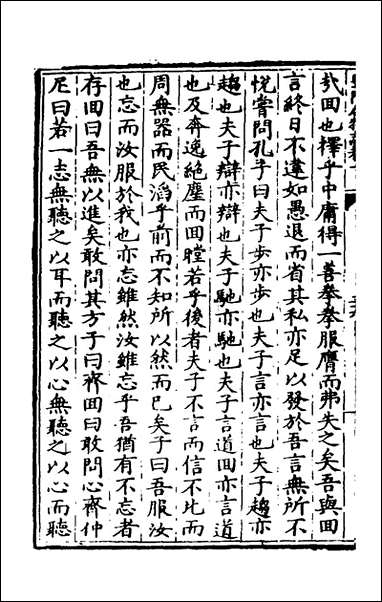 哉回也擇乎中庸得一善拳拳服膺而弗失之矣吾與回
言終日不違如愚退而省其私亦足以發於吾言無所不
悅嘗問孔子曰夫子步亦步也夫子言亦言也夫子趨亦
趨也夫子辯亦辯也夫子馳亦馳也夫子言道回亦言道
也及奔逸絶塵而回瞠若乎後者夫子不言而信不比而
周無器而民滔乎前而不知所以然而已矣子曰吾服汝
也忘而汝服於我也亦忘雖然汝雖忘乎吾猶有不忘者
存回曰吾無以進矣敢問其方子曰齊回曰敢問心齊仲
尼曰若一志無聽之以耳而聽之以心無聽之以心而聽